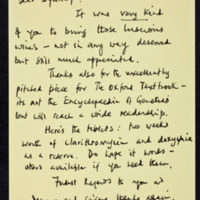 Dear Sydney,
It was very kind
of you to bring those luscious
wines – not in any way deserved
but still much appreciated.
Thanks also for the excellently
pitched piece for the Oxford Textbook –
its not the Encyclopaedia of Genetics
but will reach a wide readership.
Here's the tablets: two weeks
worth of clarithromycin and doxycyclin
as a reserve. Do hope it works –
otious available if you need them.
Fondest Regards to you as
again.